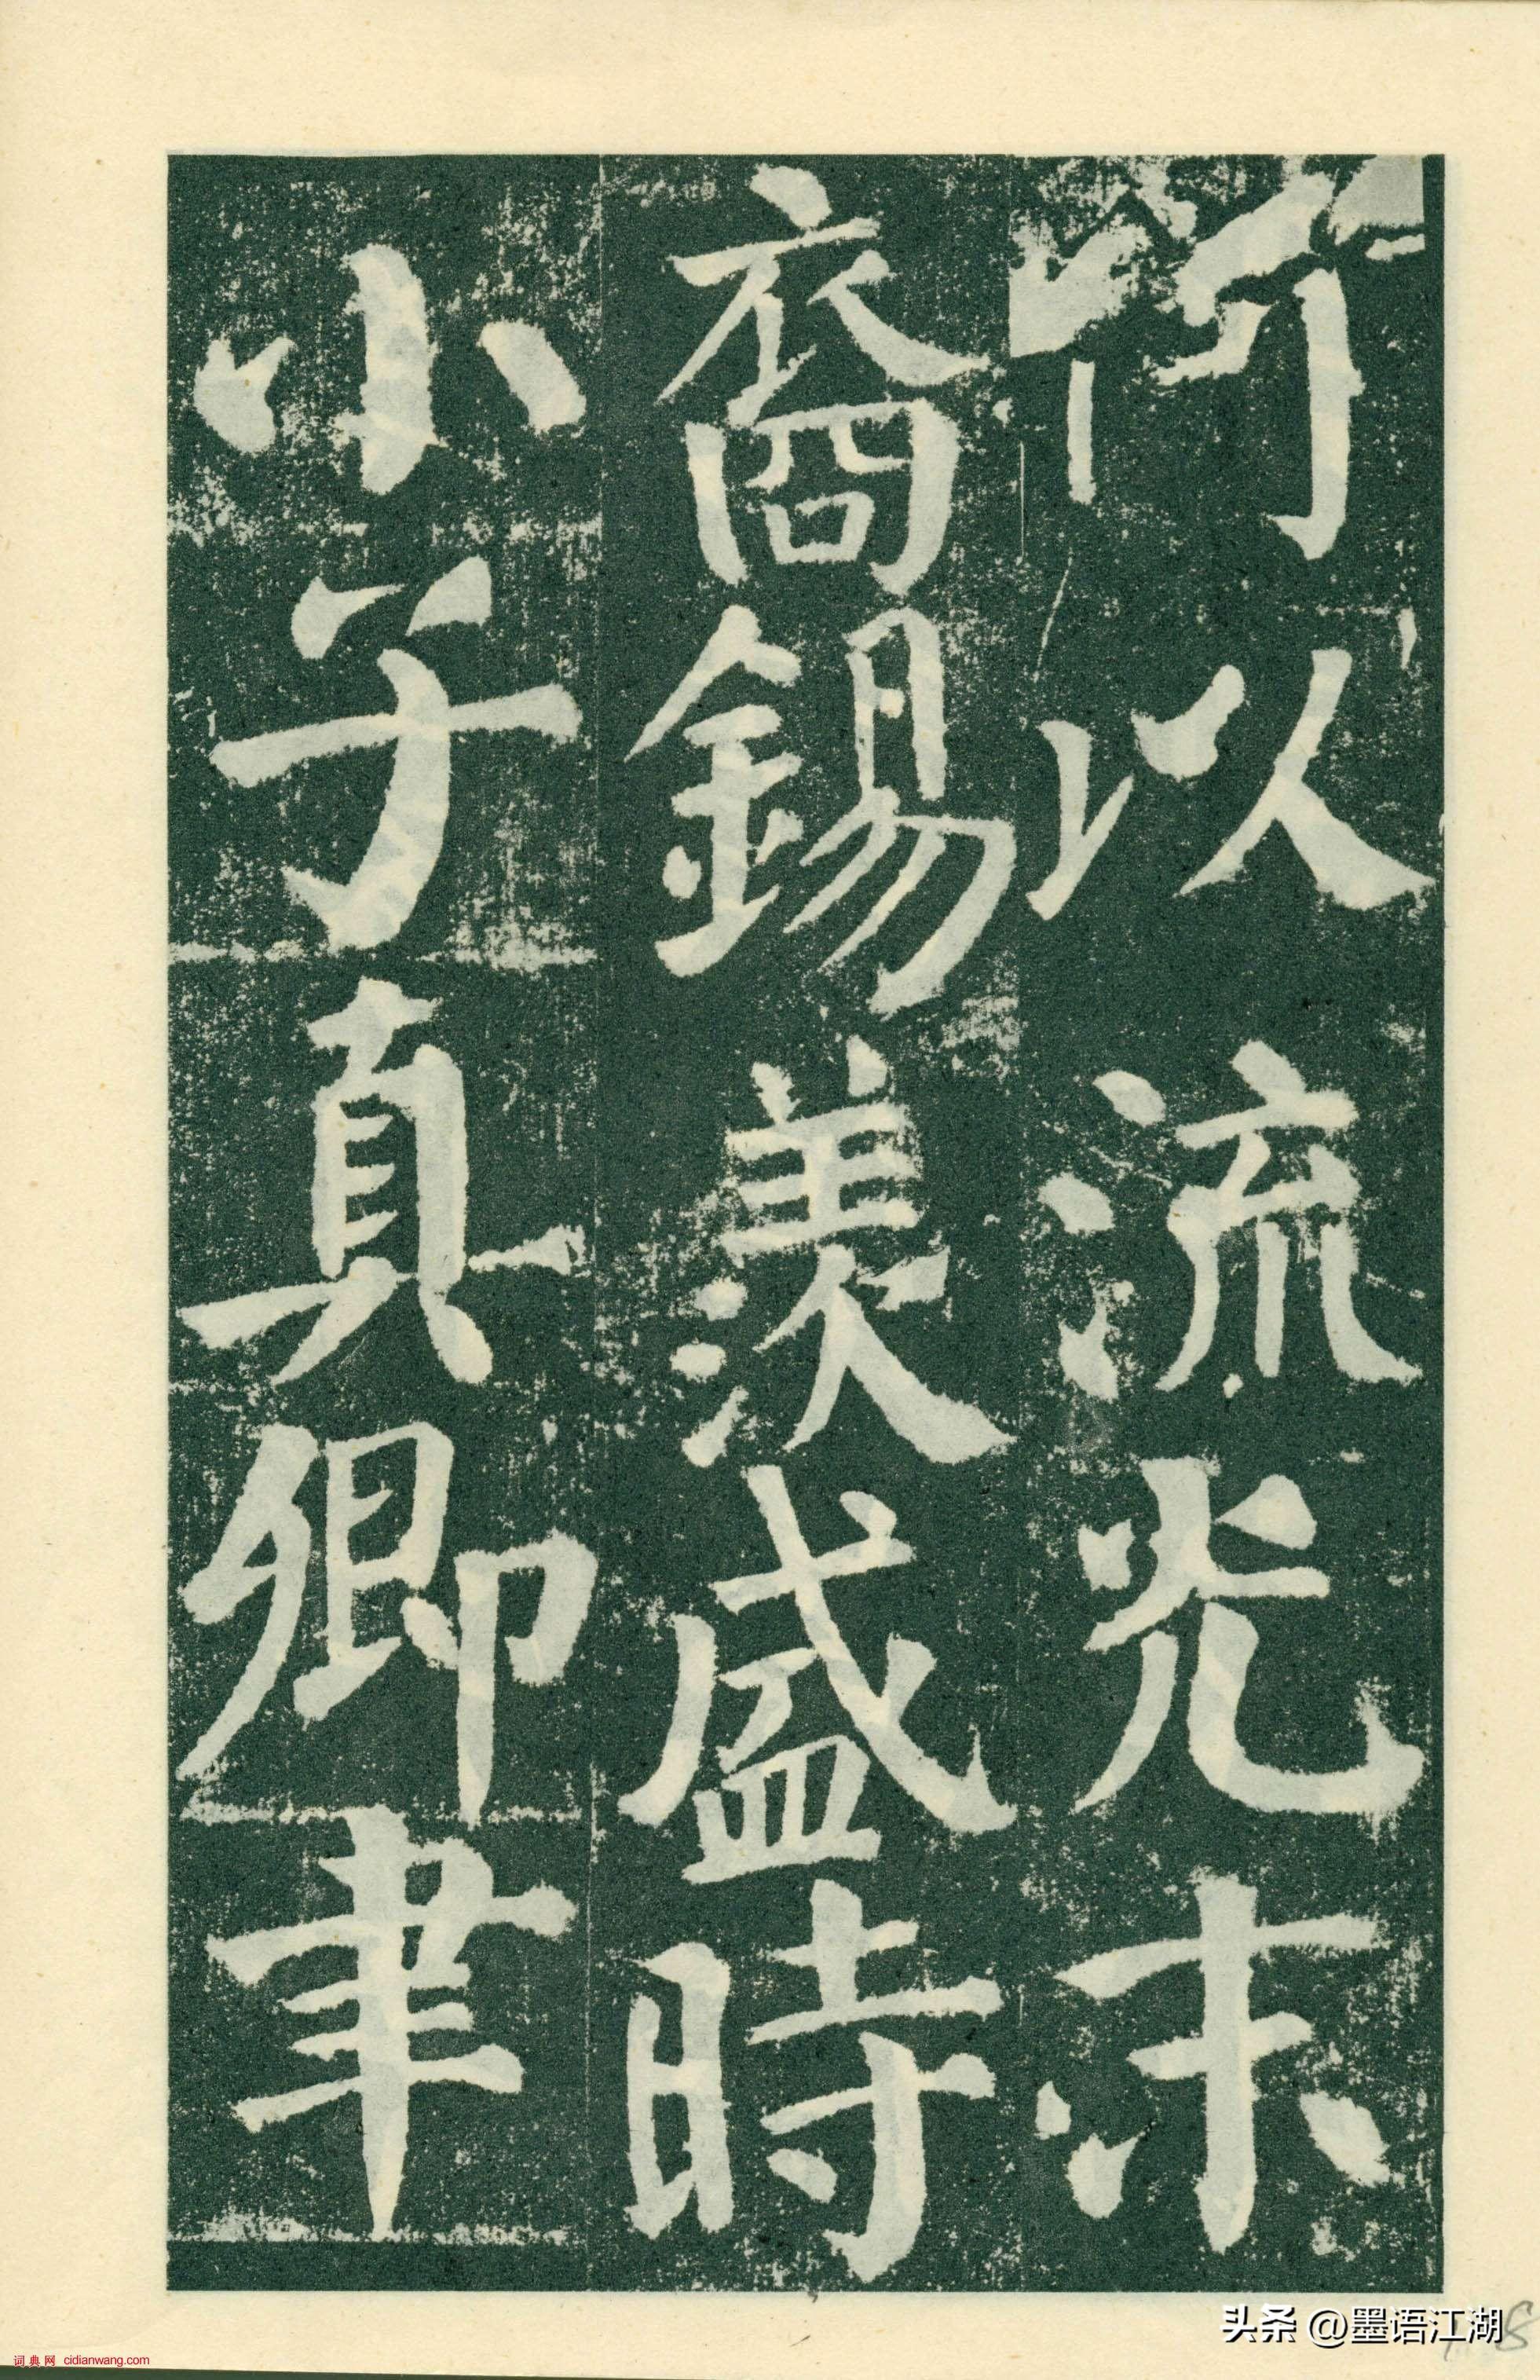 所以流光末
裔錫羨盛時
小子真卿聿
头条 @墨语江湖
词典网 cidianwang.com